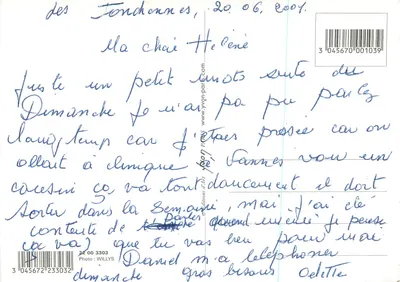 des Fondonnes, 20.06.2001.
Ma chai Heléné
Juste un petit mots suite des
Dimanche Je n'ai pa pu parlez
longtemp car j'étais pressée car on
allait à clinique de Vannes voir un
cousin ça va tout doucement il doit
sortir dans la semaine, mai j'ai été
contente de parler
je pense
(ça va) que tu vas bien pour mai
Daniel m'a telephoner
dimanche gros bisous Odette
3 045670 001039
22 00 3303
Photo : WILLYS
3 045672 233032